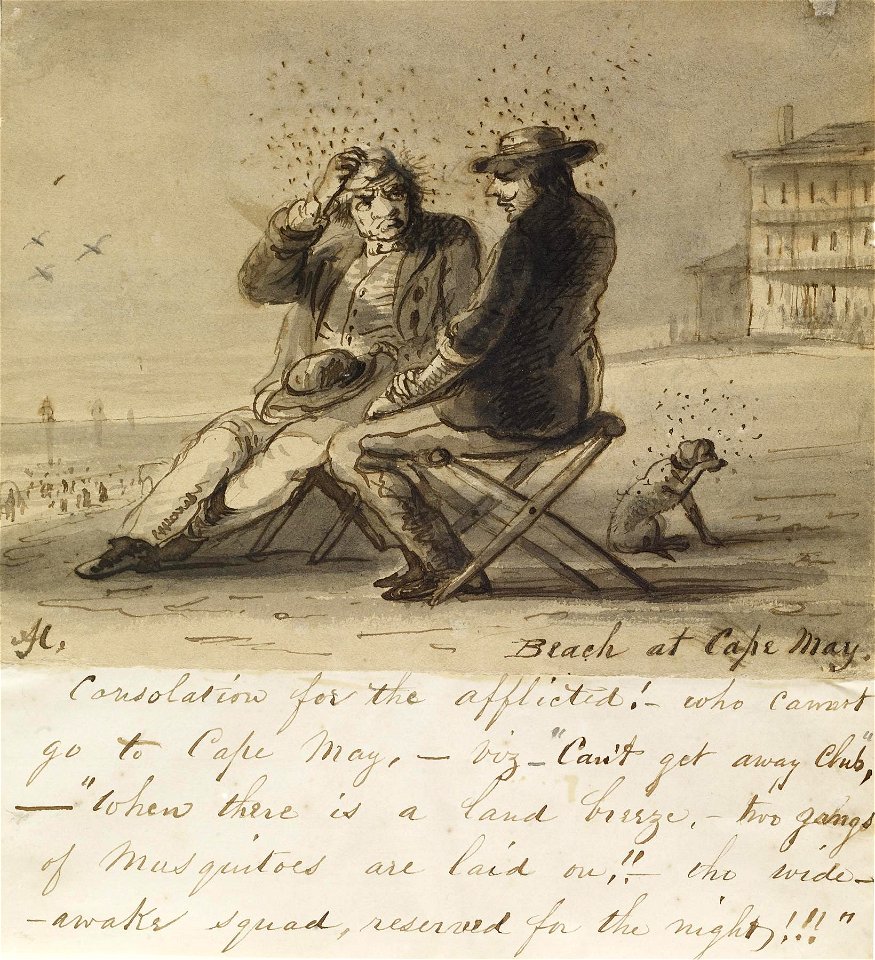 Beach at Cape May.
Consolation for the afflicted!- who cannot
go to Cape May, — viz - "Can't get away Club",
— "When there is a land breeze, - two gangs
of Musquitoes are laid on,!! — the wide-
-awake squad, reserved for the night!!!"